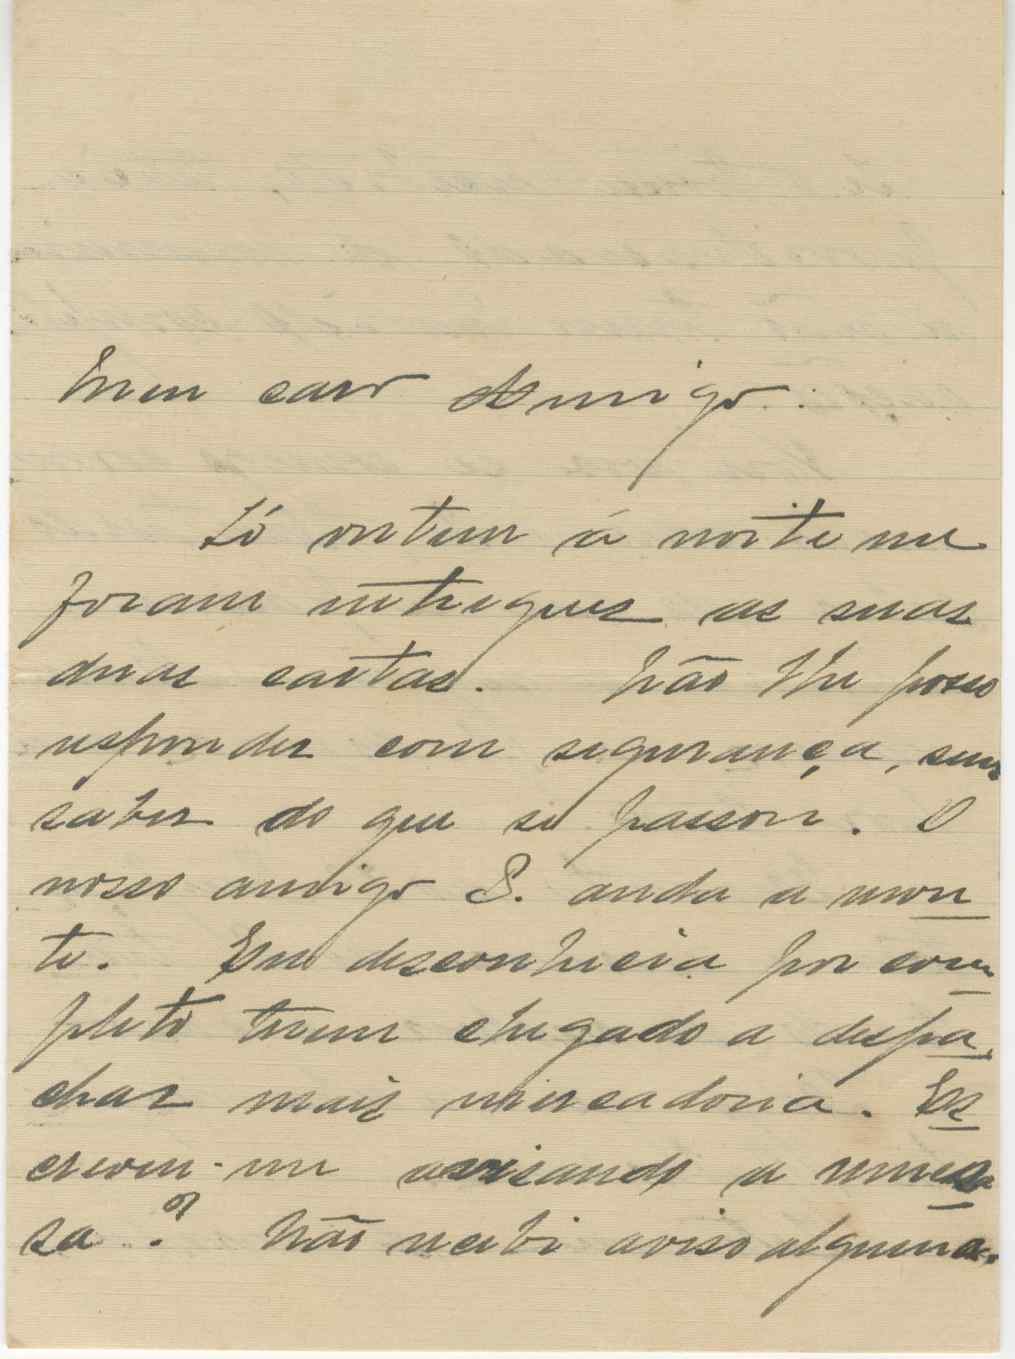 Meu caro Amigo:
Só ontem á noite me
foram entregues as suas
duas cartas. Não lhe posso
responder com segurança, sem
saber do que se passou. O
nosso amigo S. anda a mon
te. Eu desconhecia por com
pleto terem chegado a despa
char mais mercadoria. Es
creveu-me avisando a remes
sa? Não recebi aviso algum.